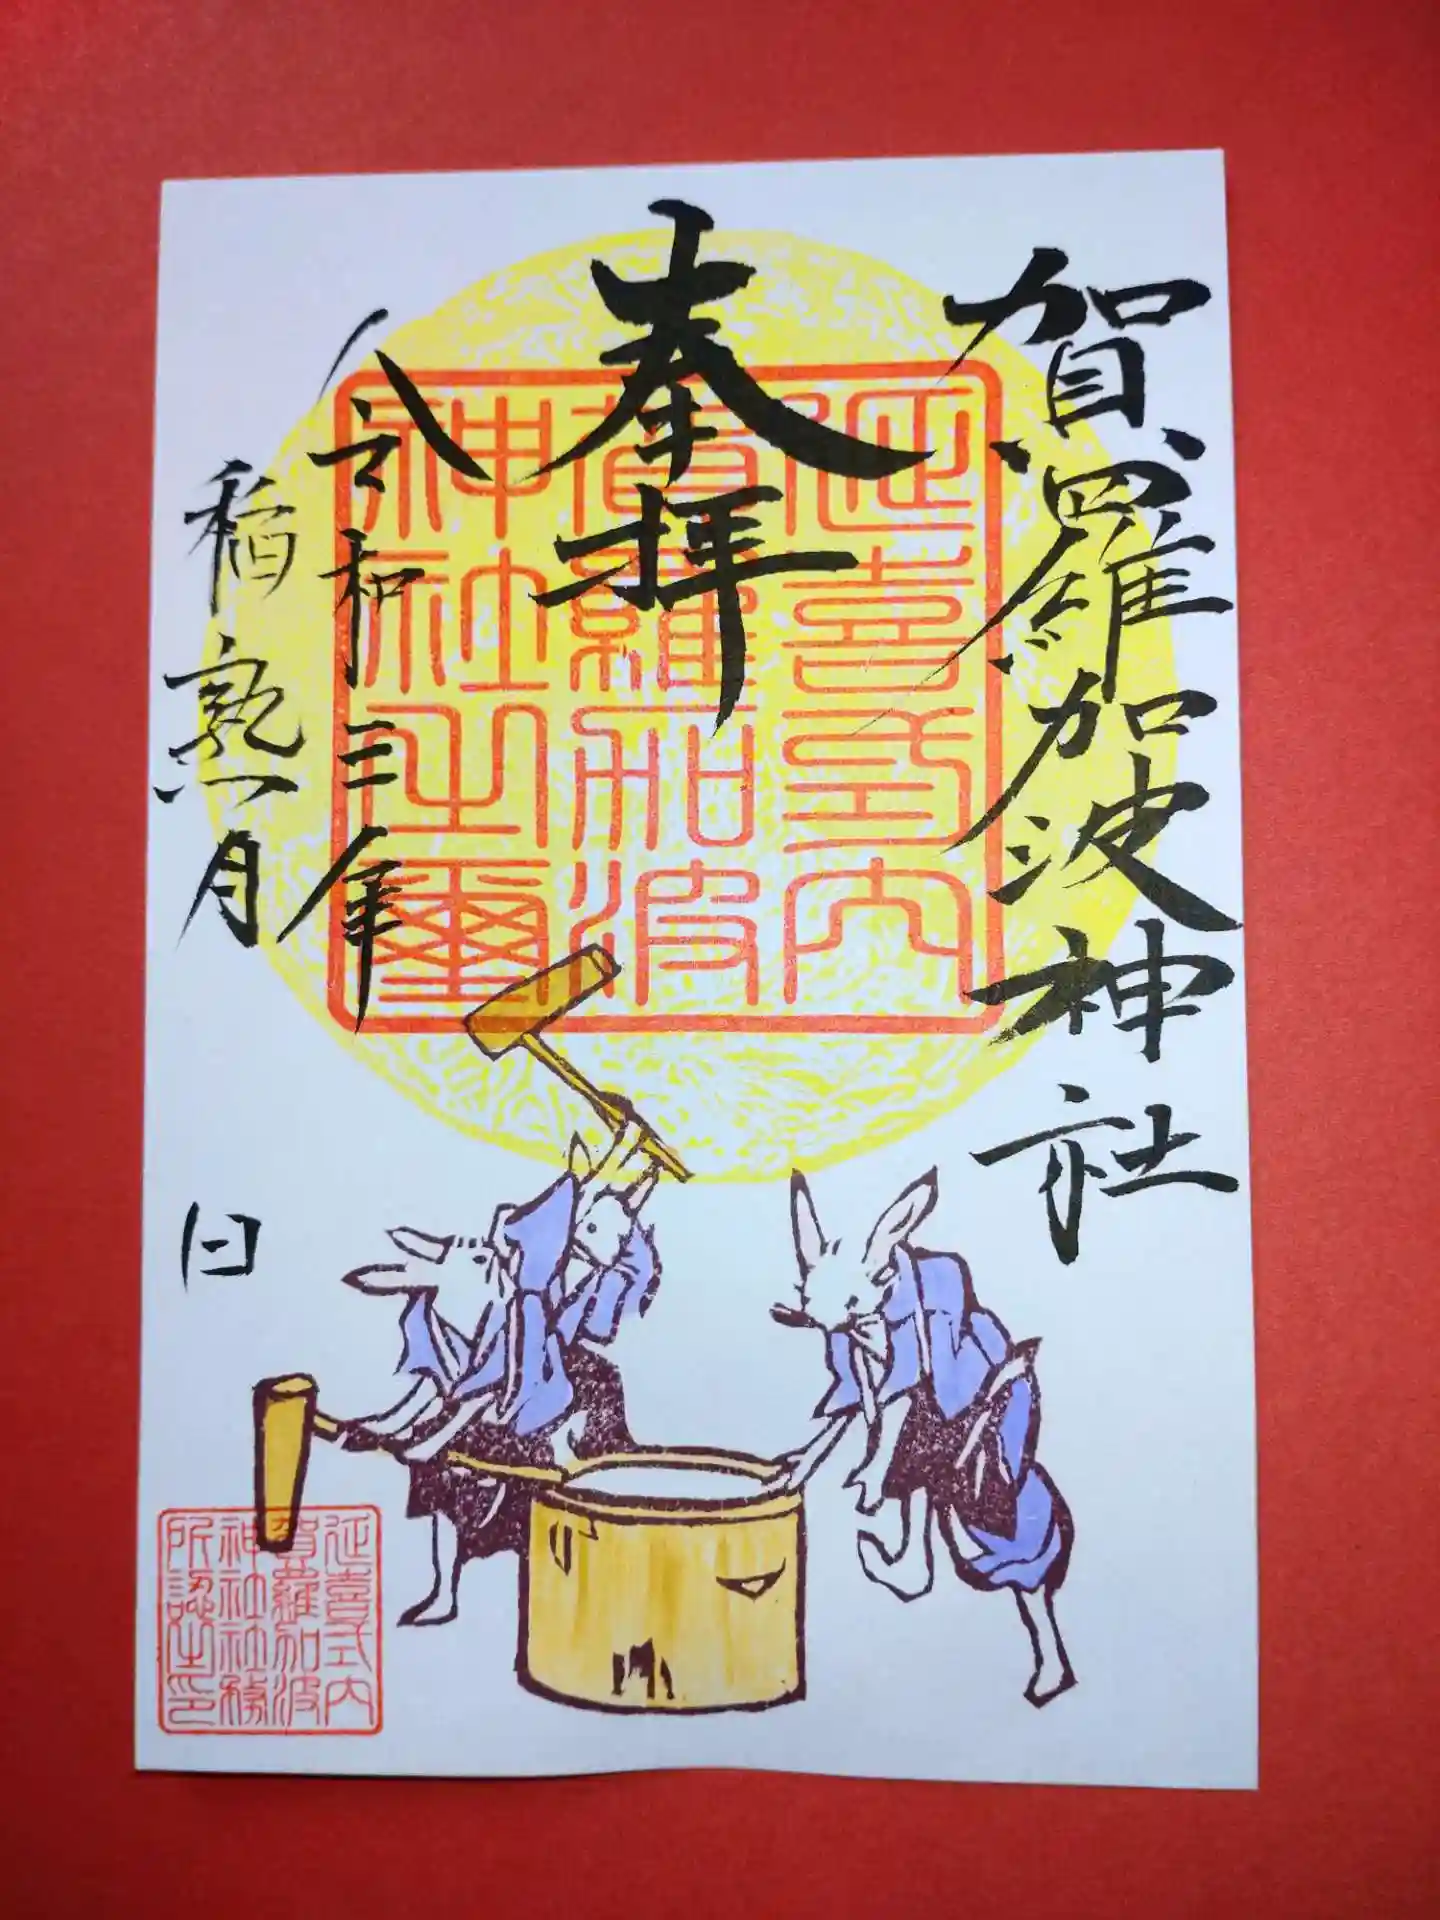 賀羅加波神社
奉拝
令和三年
稲熟月
日
延喜式内
賀羅加波
神社之璽
延喜式内
賀羅加波
神社社務
所認之印